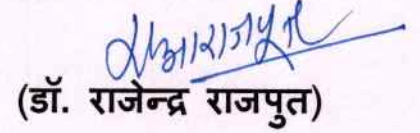 (डॉ. राजेन्द्र राजपूत)